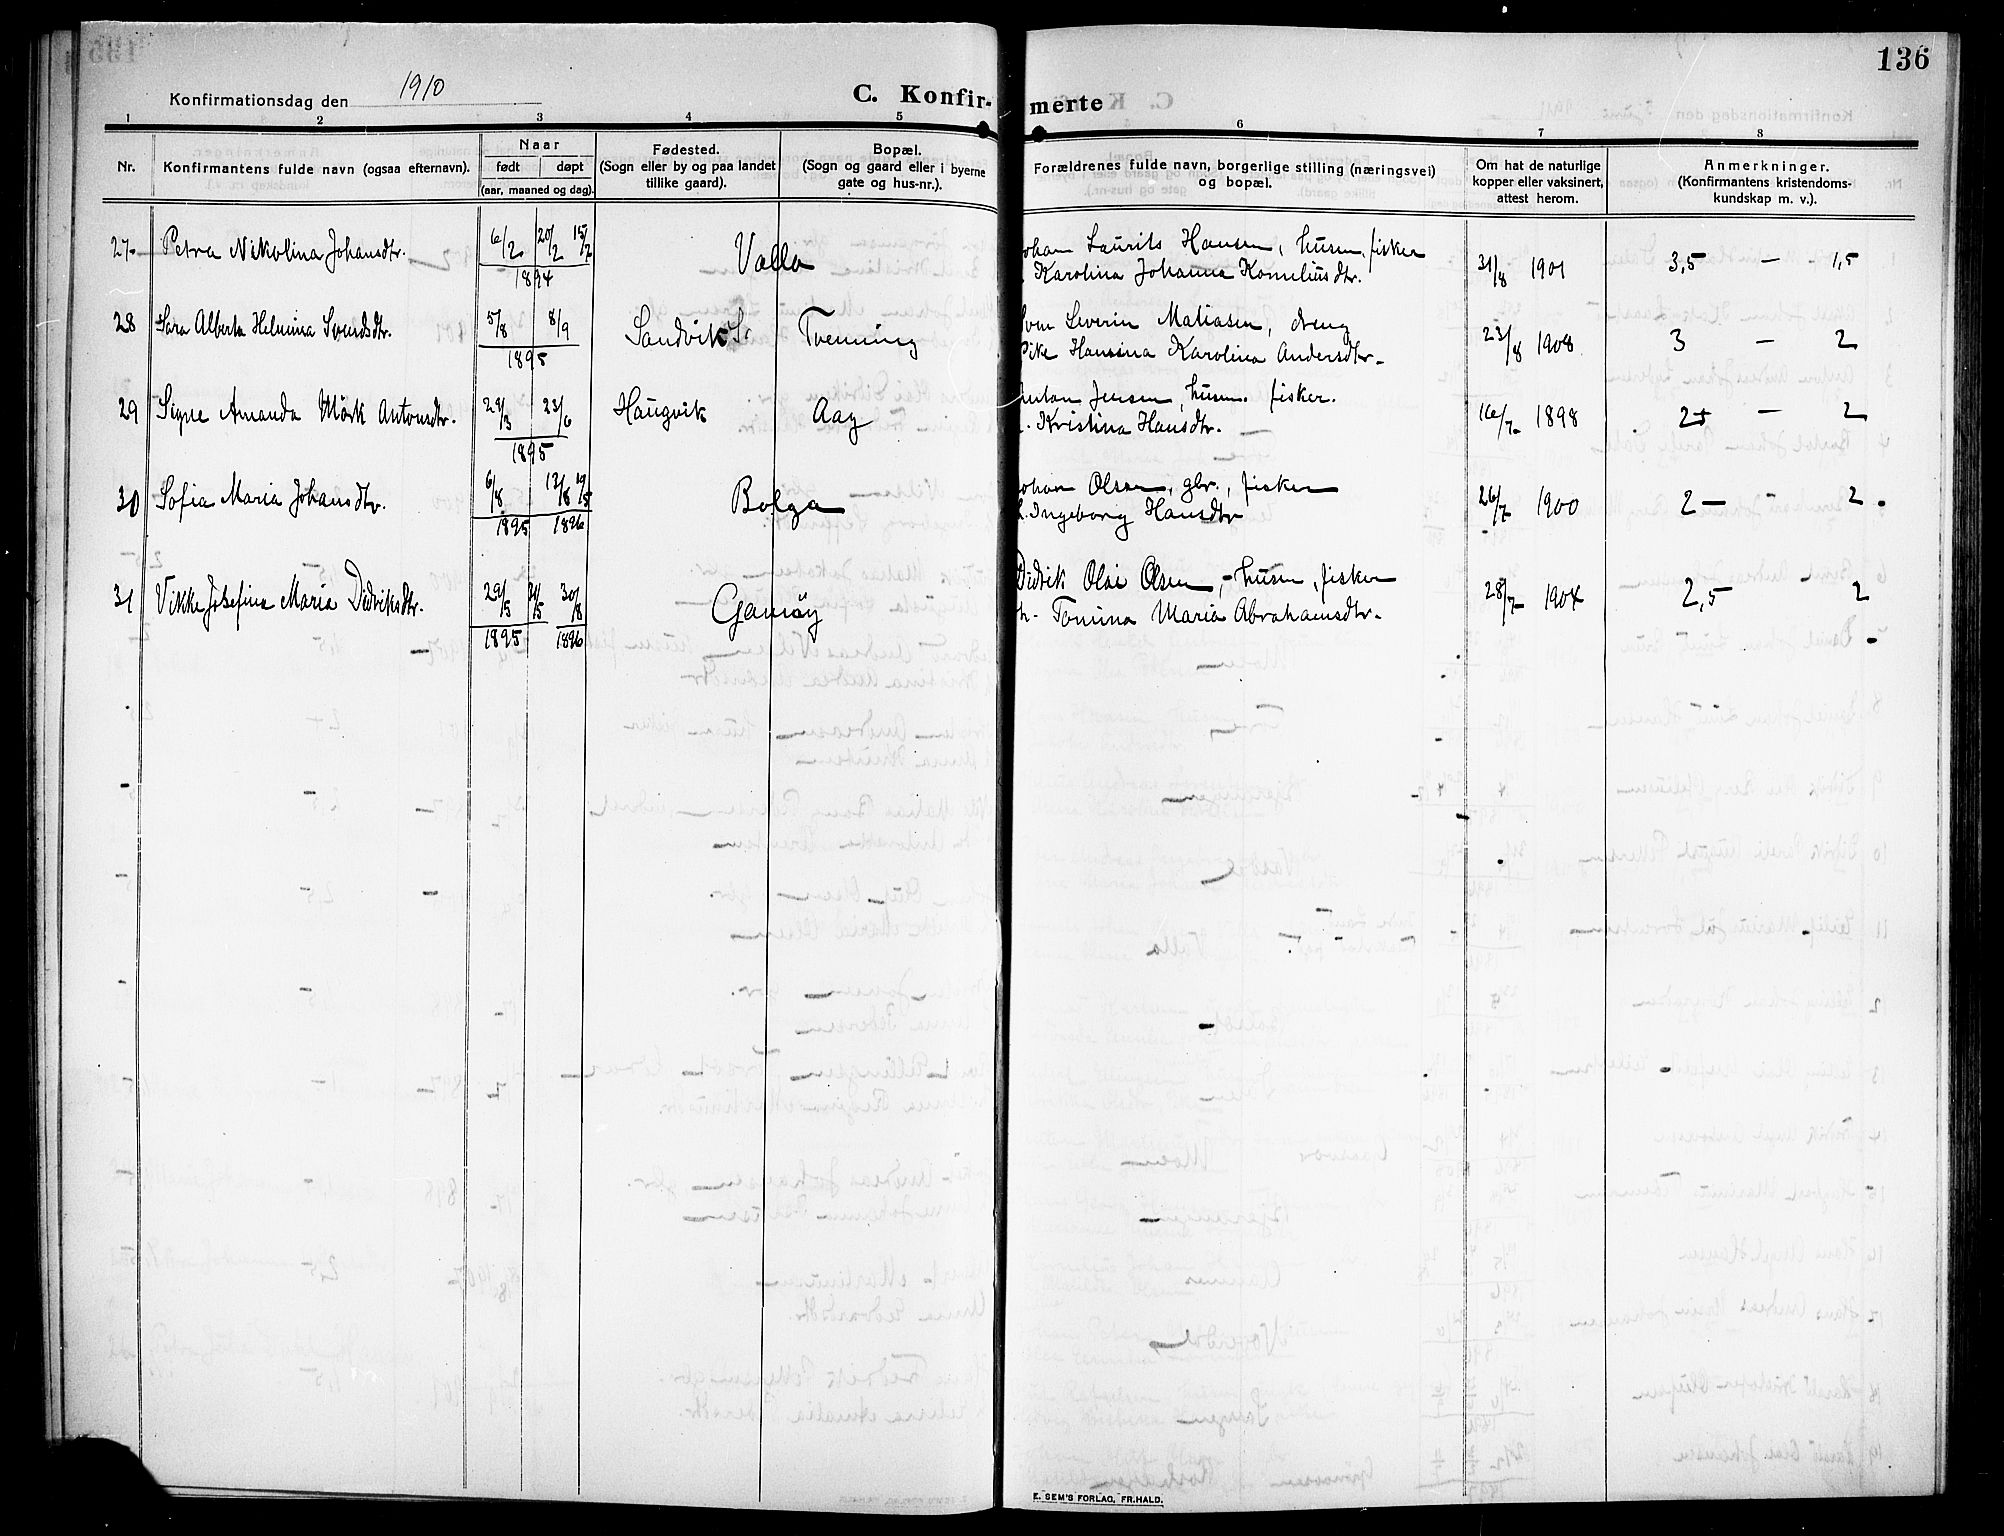 136
Konfirmationsdag den 1910
C. Konfir- merte
1 2 3 4 5 6 7 8
Nr. Konfirmantens fulde navn (ogsaa efternavn). Naar født døpt (aar, maaned og dag). Fødested. (Sogn eller by og paa landet tillike gaard). Bopæl. (Sogn og gaard eller i byerne gate og hus-nr.). Forældrenes fulde navn, borgerlige stilling (næringsvei) og bopæl. Om hat de naturlige kopper eller vaksinert, attest herom. Anmerkninger. (Konfirmantens kristendoms- kundskap m. v.).
27- Petra Nikolina Johansdtr. 6/2 20/2 15/7 Valla ohan Laurits Hansen, husm. fisker 31/8 1901 3,5 — 1,5
1894 Karolina Johanna Korneliusdtr.
28 Sara Alberta Helmina Svendsdtr. 5/8 8/9 Sandvik Tvenning Sven Severin Matiasen, dreng 23/8 1908 3 — 2
1895 Pike Hansina Karolina Andersdtr-
29 Signe Amanda Mörk Antonsdtr. 29/3 23/6 Haugvik Aag nton Jensen, husm. fisker. 16/7- 1898 2+ — 2
1895 Kristina Hansdtr.
30 Sofia Maria Johansdtr. 6/8 13/8 19/5 Bolga ohan Olsen, gbr., fisker 26/7- 1900 2 — 2.
1895 1896 Ingeborg Hansdtr
31 Vikke Josefina Maria Didriksdtr. 29/5 24/5 30/8 Gamöy Didrik Olai Olsen, - husm, fisker 28/7- 1904 2,5 - 2
1895 1896 h- Tomina Maria Abrahamsdtr.
E. SEM'S FORLAG, FR.HALD.